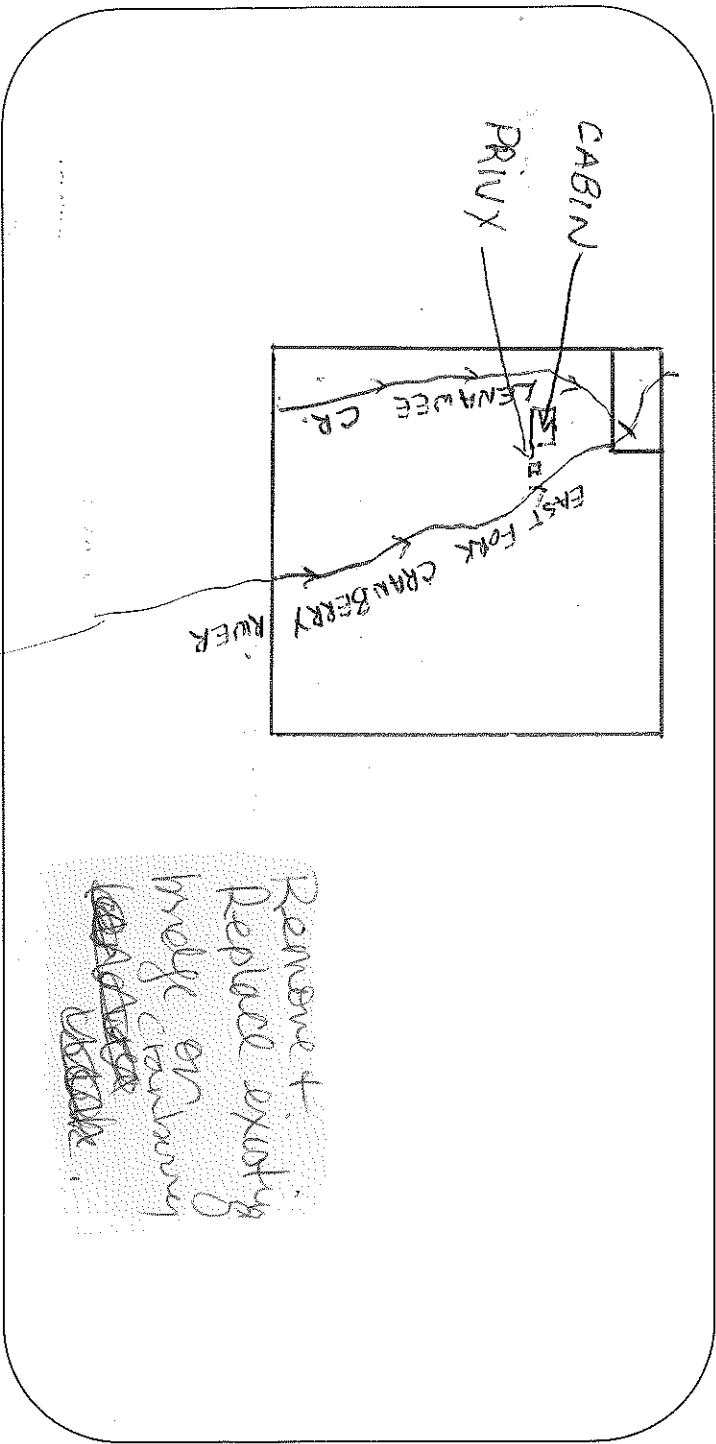 CABIN
PRIVY
LENAWEE CR.
EAST FORK CRANBERRY RIVER
Remove +
Replace existing
bridge on
Cranberry